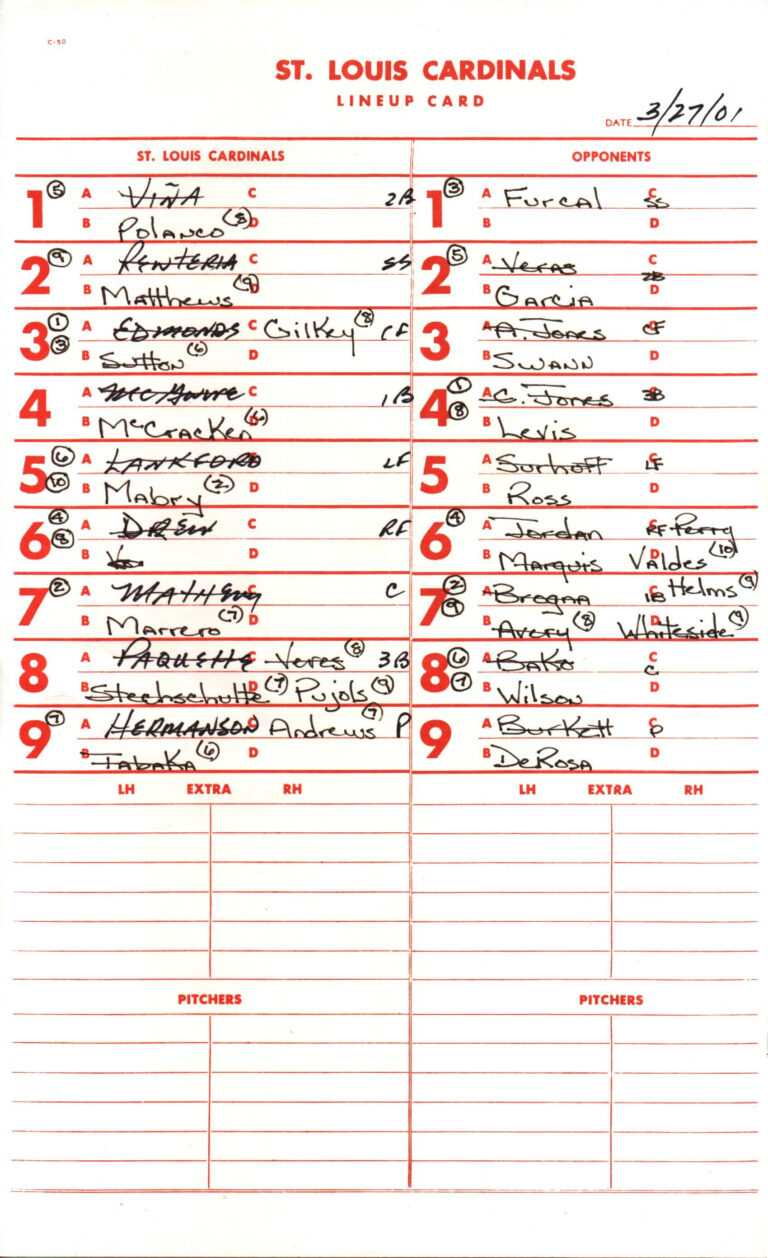 C-50
ST. LOUIS CARDINALS
LINEUP CARD
DATE 3/27/01
ST. LOUIS CARDINALS OPPONENTS
1 5 A VIÑA C 2B 1 3 A Furcal C SS
B Polanco (8) D B D
2 9 A RENTERIA C SS 2 5 A Veras C 2B
B Matthews (9) D B Garcia D
3 1 3 A EDMONDS C Gilkey (8) CF 3 A A. Jones C CF
B Sutton (6) D B Swann D
4 A McGwire C 1B 4 1 8 A C. Jones C 3B
B McCracken (6) D B Levis D
5 6 10 A LANKFORD C LF 5 A Surhoff C LF
B Mabry (2) D B Ross D
6 4 8 A DREW C RF 6 4 A Jordan C RF Perry
B D B Marquis D Valdes (10)
7 2 A MATHENY C C 7 2 9 A Brogna C 1B Helms (9)
B Marrero (7) D B Avery (8) D Whiteside (9)
8 A PAQUETTE C Veres (8) 3B 8 6 7 A Bako C C
B Stechschulte (7) D Pujols (9) B Wilson D
9 7 A HERMANSON C Andrews (7) P 9 A Burkett C P
B Tabaka (6) D B DeRosa D
LH EXTRA RH LH EXTRA RH
PITCHERS PITCHERS